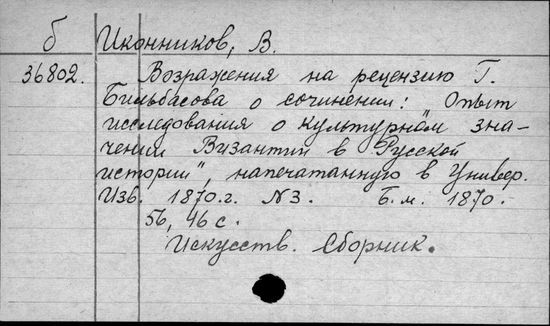 б Иконников, В.
36802. Возражения на рецензию Г.
Бильбасова о сочинении: „Опыт
исследования о культурном зна-
чении Византии в Русской
истории", напечатанную в Универ.
Изв. 1870.г. №3. Б.м. 1870.
56, 46 с.
Искусств. Сборник.